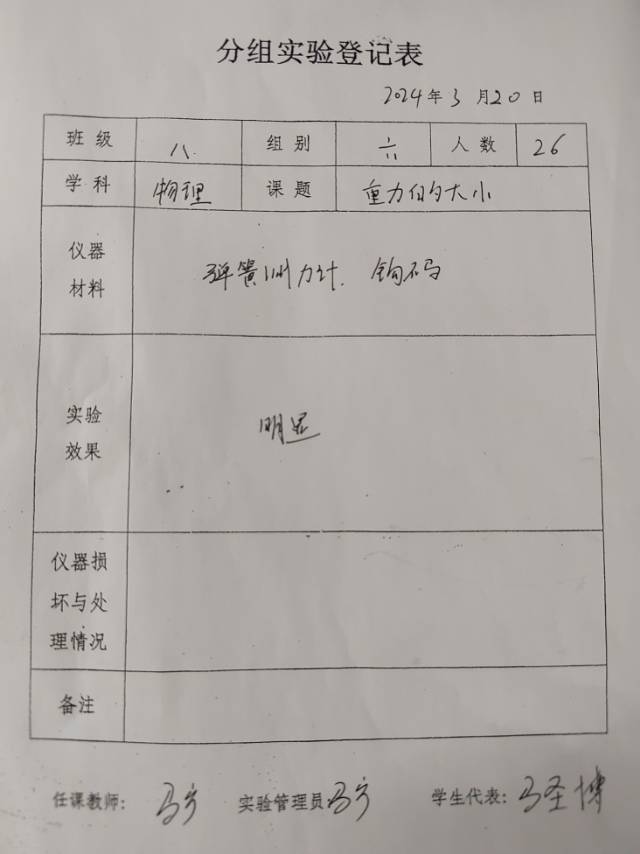 分组实验登记表
2024年3月20日
班级 八 组别 六 人数 26
学科 物理 课题 重力的大小
仪器材料 弹簧测力计. 钩码
实验效果 明显
仪器损坏与处理情况
备注
任课教师: 马 实验管理员: 马 学生代表: 马圣博